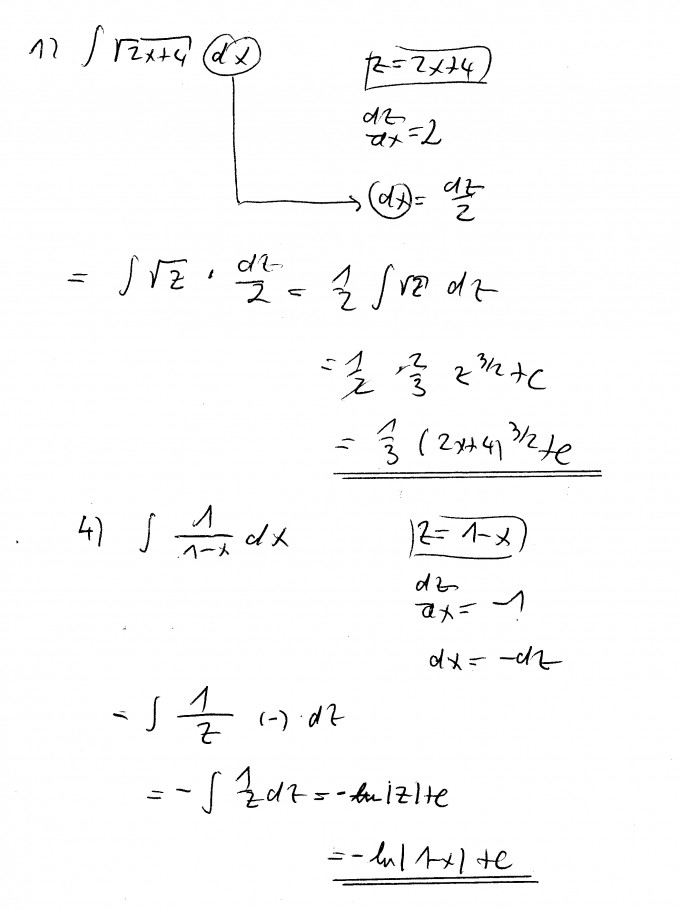 1) ∫ √2x+4 dx z=2x+4
dz/dx = 2
dx = dz/2
= ∫ √z · dz/2 = 1/2 ∫ √z dz
= 1/2 · 2/3 z^3/2 + C
= 1/3 (2x+4)^3/2 + C
4) ∫ 1/1-x dx z = 1-x
dz/dx = -1
dx = -dz
= ∫ 1/z (-) · dz
= - ∫ 1/z dz = - ln|z| + C
= - ln|1-x| + C